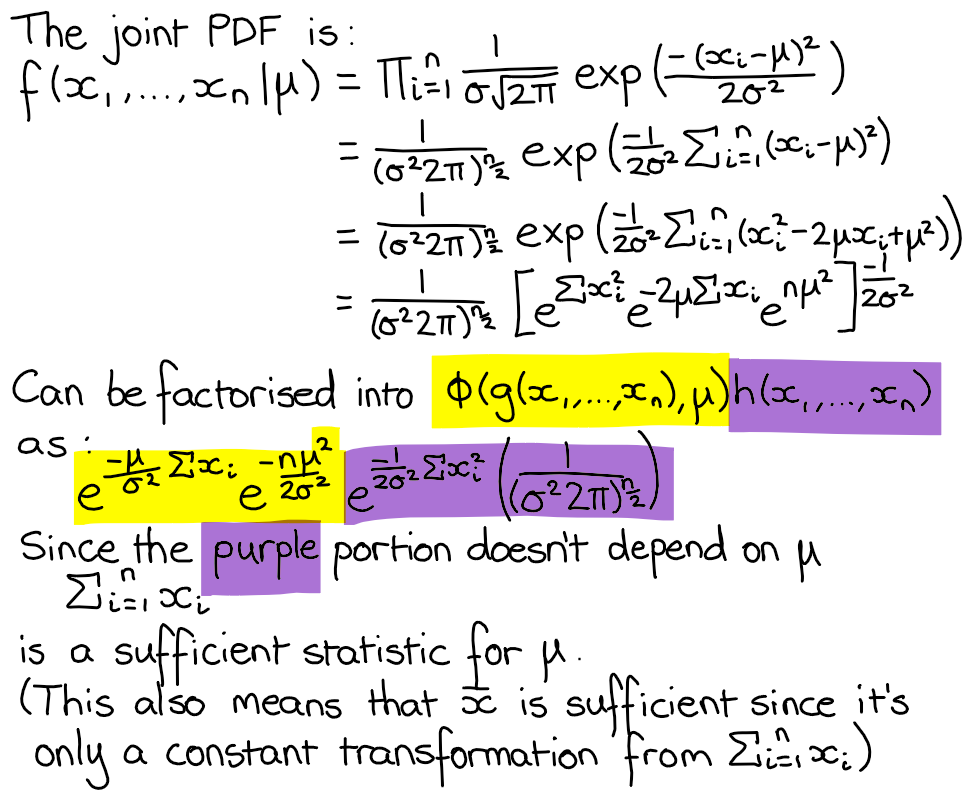 The joint PDF is:
f(x₁,...,xₙ|μ) = ∏ᵢ₌₁ⁿ 1/(σ√2π) exp(-(xᵢ-μ)²/2σ²)
= 1/(σ²2π)^(n/2) exp(-1/2σ² ∑ᵢ₌₁ⁿ(xᵢ-μ)²)
= 1/(σ²2π)^(n/2) exp(-1/2σ² ∑ᵢ₌₁ⁿ(xᵢ²-2μxᵢ+μ²))
= 1/(σ²2π)^(n/2) [e^(∑xᵢ²) e^(-2μ∑xᵢ) e^(nμ²)]^(-1/2σ²)
Can be factorised into ϕ(g(x₁,...,xₙ),μ)h(x₁,...,xₙ)
as:
e^(-μ/σ² ∑xᵢ) e^(-nμ²/2σ²) e^(-1/2σ² ∑xᵢ²) (1/(σ²2π)^(n/2))
Since the purple portion doesn't depend on μ
∑ᵢ₌₁ⁿ xᵢ
is a sufficient statistic for μ.
(This also means that x̄ is sufficient since it's
only a constant transformation from ∑ᵢ₌₁ⁿ xᵢ)